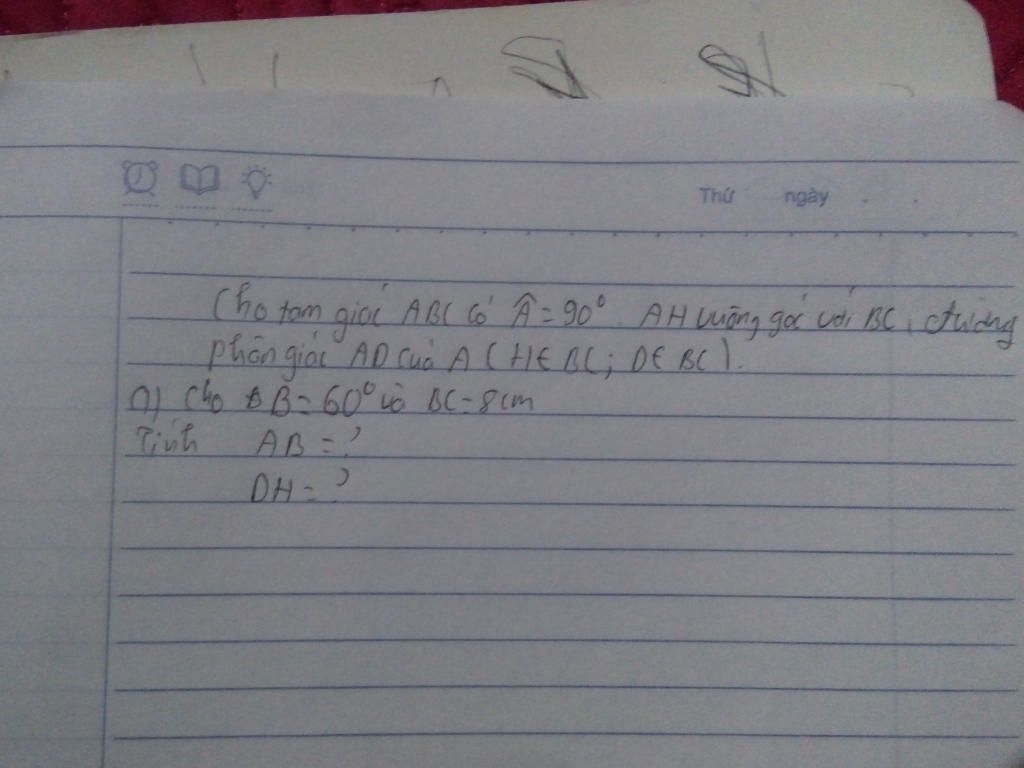 Thứ ngày . .
Cho tam giác ABC có Â = 90⁰. AH vuông góc với BC, đường
phân giác AD của A (H∈ BC; D∈ BC).
a) Cho B = 60⁰ và BC = 8cm
Tính AB = ?
DH = ?